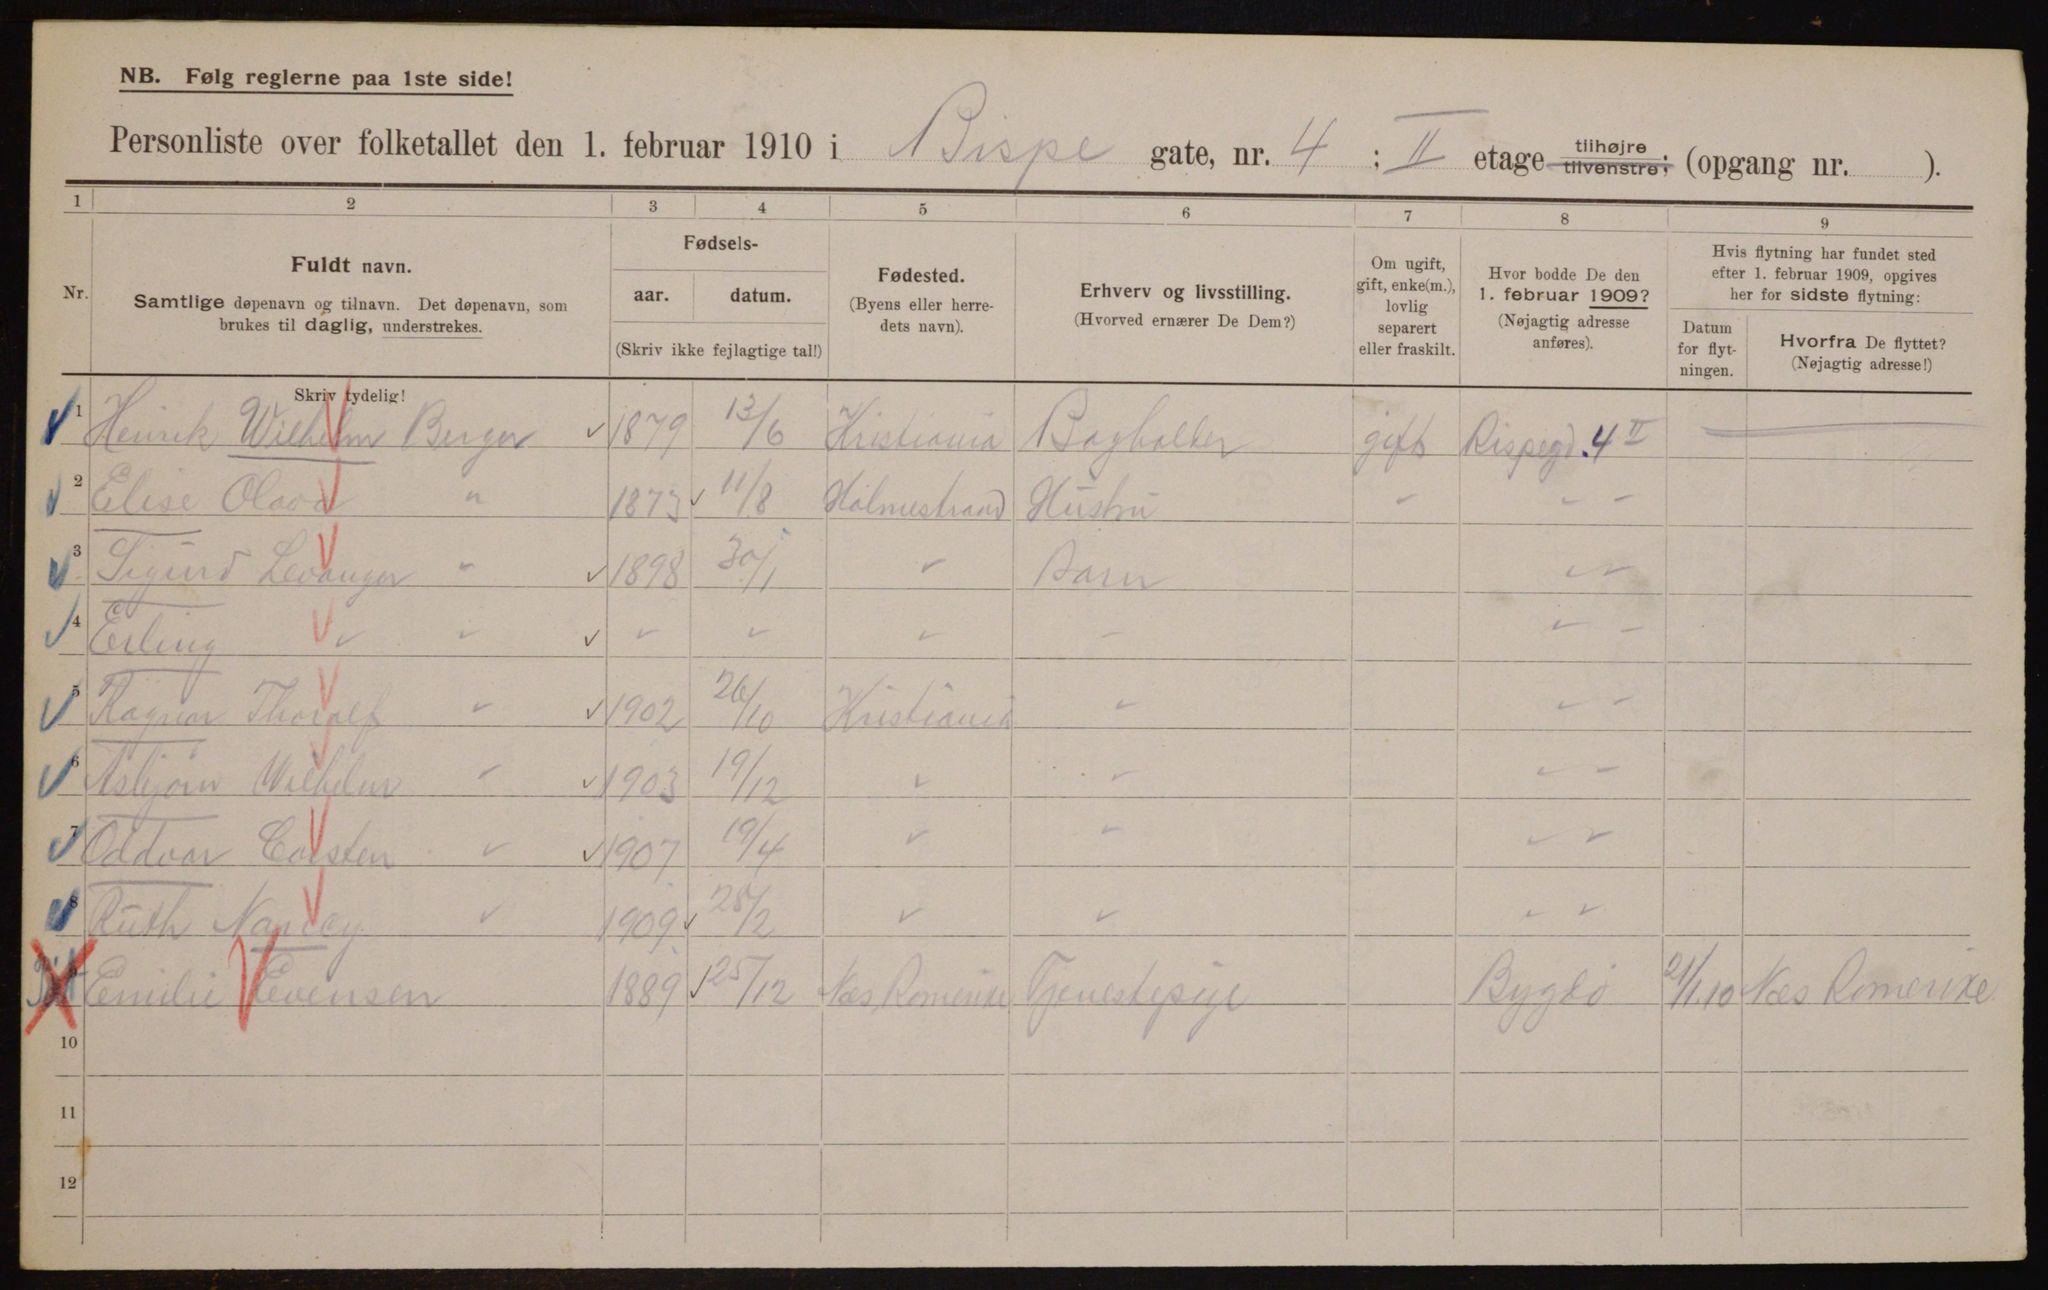 NB. Følg reglerne paa 1ste side!
Personliste over folketallet den 1. februar 1910 i Bispe gate, nr. 4 ; II etage tilhøjre tilvenstre; (opgang nr. ).
1 2 3 4 5 6 7 8 9
Nr.
Fuldt navn.
Samtlige døpenavn og tilnavn. Det døpenavn, som
brukes til daglig, understrekes.
Fødsels-
aar. datum.
(Skriv ikke fejlagtige tal!)
Fødested.
(Byens eller herre-
dets navn).
Erhverv og livsstilling.
(Hvorved ernærer De Dem?)
Om ugift,
gift, enke(m.),
lovlig
separert
eller fraskilt.
Hvor bodde De den
1. februar 1909?
(Nøjagtig adresse
anføres).
Hvis flytning har fundet sted
efter 1. februar 1909, opgives
her for sidste flytning:
Datum
for flyt-
ningen.
Hvorfra De flyttet?
(Nøjagtig adresse!)
Skriv tydelig!
1 Henrik Wilhelm Berger 1879 13/6 Kristiania Bogholder gift Bispegd. 4 II
2 Elise Olava " 1873 11/8 Holmestrand Hustru " " "
3 Sigurd Levanger " 1898 30/1 " Barn " "
4 Erling " " " " " " " "
5 Ragnar Thoralf " 1902 26/10 Kristiania " " "
6 Asbjørn Wilhelm " 1903 19/12 " " " "
7 Oddvar Carsten " 1907 19/4 " " " "
8 Ruth Nancy " 1909 25/2 " " " "
9 Emilie Evensen 1889 25/12 Næs Romerike Tjenestepige Bygdø 21/1.10 Næs Romerike
10
11
12